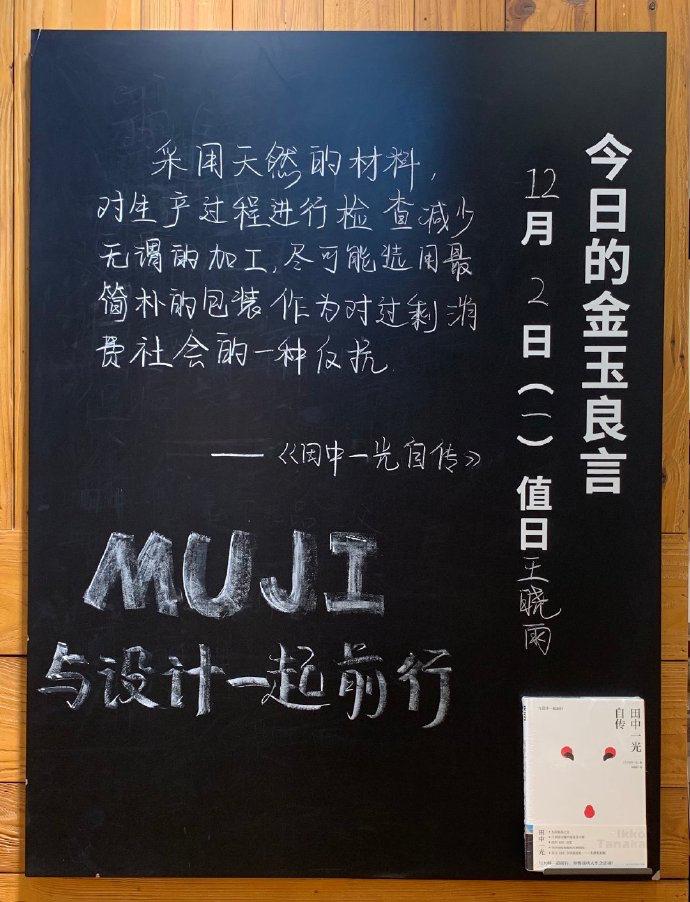 今日的金玉良言
12月2日(一)值日王晓雨
采用天然的材料,
对生产过程进行检查减少
无谓的加工,尽可能选用最
简朴的包装作为对过剩消
费社会的一种反抗.
——《田中一光自传》
MUJI
与设计一起前行
田中一光
自传
田中一光
Ikko
Tanaka